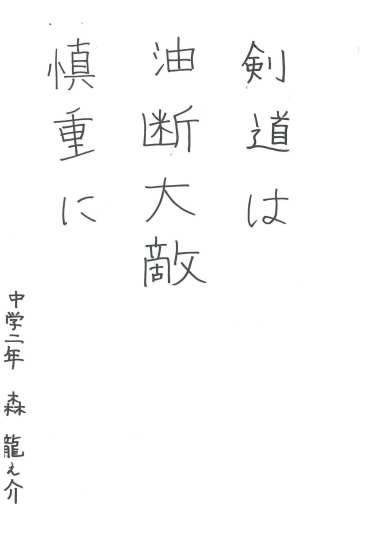 剣道は
油断大敵
慎重に
中学二年 森 龍之介